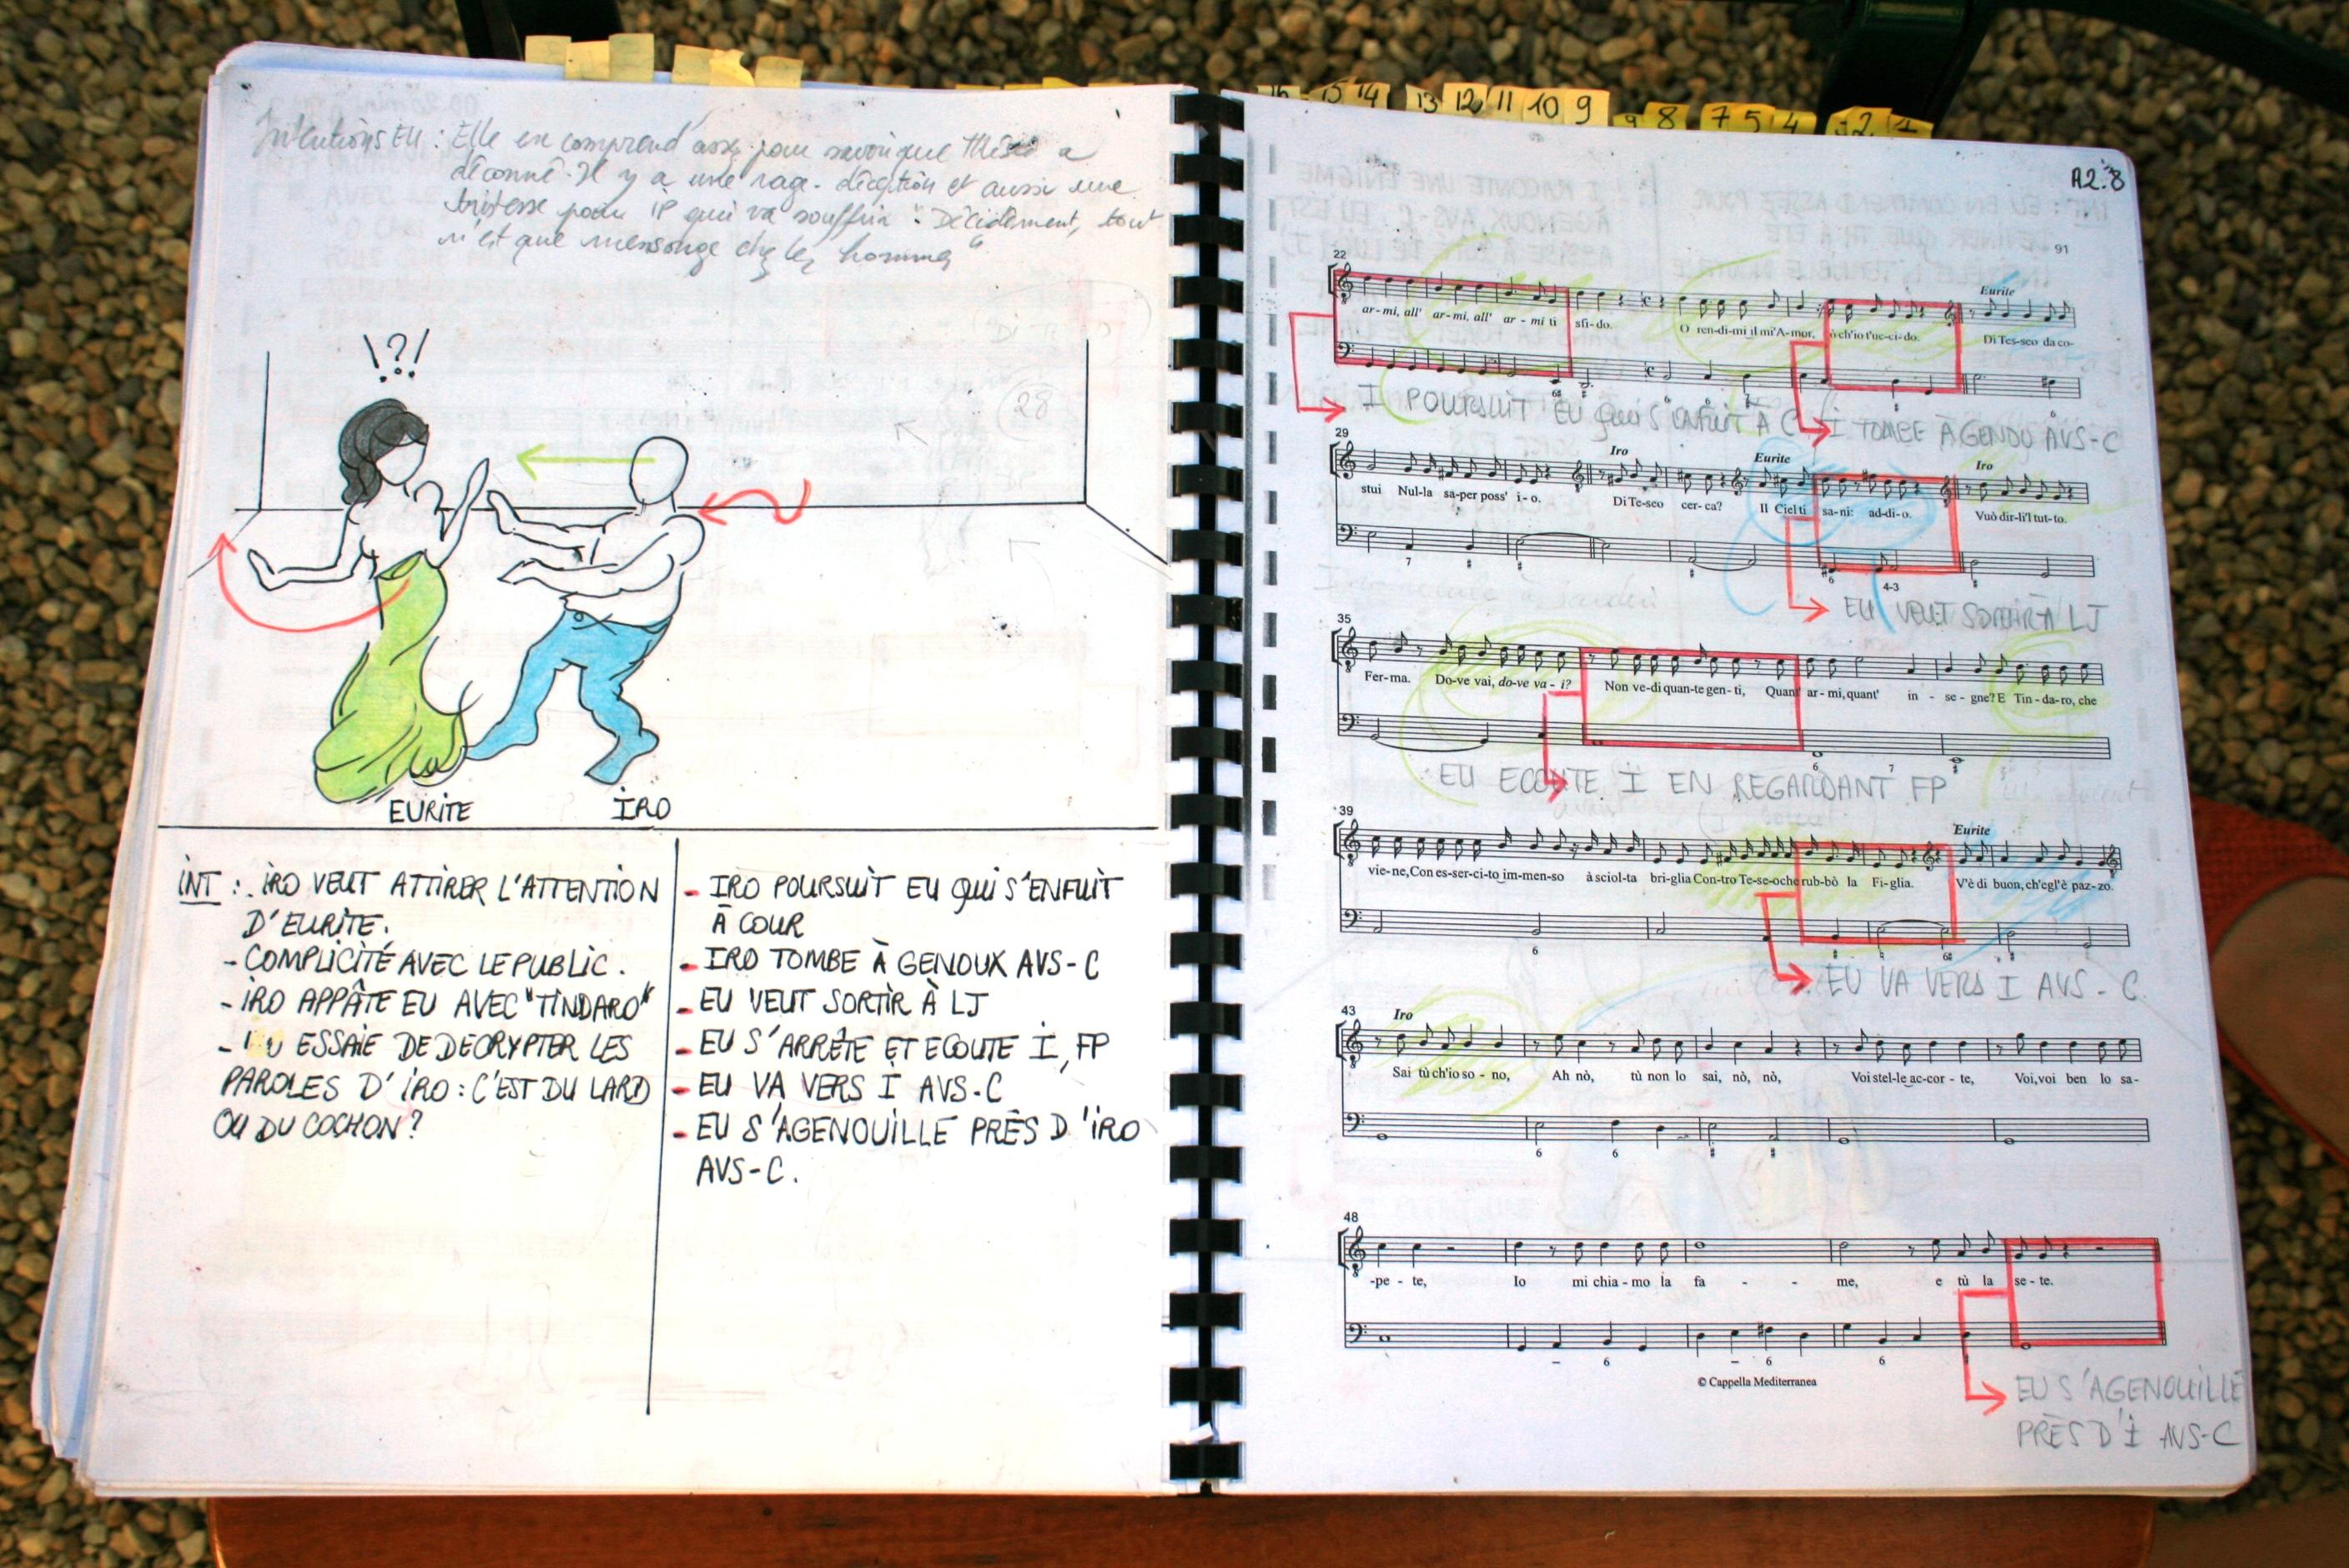 Intentions EU : Elle en comprend assez pour savoir que Thésée a
déconné. Il y a une rage - déception et aussi une
tristesse pour IP qui va souffrir. "Décidément, tout
n'est que mensonge chez les hommes"
\?!
28
EURITE IRO
INT : IRO VEUT ATTIRER L'ATTENTION
D'EURITE.
- COMPLICITÉ AVEC LE PUBLIC.
- IRO APPÂTE EU AVEC "TINDARO"
- EU ESSAIE DE DECRYPTER LES
PAROLES D'IRO : C'EST DU LARD
OU DU COCHON ?
- IRO POURSUIT EU QUI S'ENFUIT
À COUR
- IRO TOMBE À GENOUX AVS-C
- EU VEUT SORTIR À LJ
- EU S'ARRÊTE ET ECOUTE I, FP
- EU VA VERS I AVS-C
- EU S'AGENOUILLE PRÈS D'IRO
AVS-C.
15 14 13 12 11 10 9 9 8 7 5 4 2 1
A2.8
91
22
Eurite
ar-mi, all' ar-mi, all' ar-mi ti sfi-do. O ren-di-mi il mi'A-mor, ò ch'io t'uc-ci-do. Di Tes-seo da co-
I POURSUIT EU QUI S'ENFUIT À C I TOMBE À GENOU AVS-C
29
Iro Eurite Iro
stui Nul-la sa-per poss' i-o. Di Te-seo cer-ca? Il Ciel ti sa-ni: ad-di-o. Vuò dir-li'l tut-to.
7 6 4-3
EU VEUT SORTIR À LJ
35
Fer-ma. Do-ve vai, do-ve va-i? Non ve-di quan-te gen-ti, Quant' ar-mi, quant' in-se-gne? E Tin-da-ro, che
6 7
EU ECOUTE I EN REGARDANT FP
39
Eurite
vie-ne, Con es-ser-ci-to im-men-so à sciol-ta bri-glia Con-tro Te-se-o che rub-bò la Fi-glia. V'è di buon, ch'egl'è paz-zo.
6 6
EU VA VERS I AVS-C
43
Iro
Sai tù ch'io so-no, Ah nò, tù non lo sai, nò, nò, Voi stel-le ac-cor-te, Voi, voi ben lo sa-
6 6
48
-pe-te, Io mi chia-mo la fa - - me, e tù la se-te.
– 6 – 6 6
© Cappella Mediterranea
EU S'AGENOUILLE
PRÈS D'I AVS-C